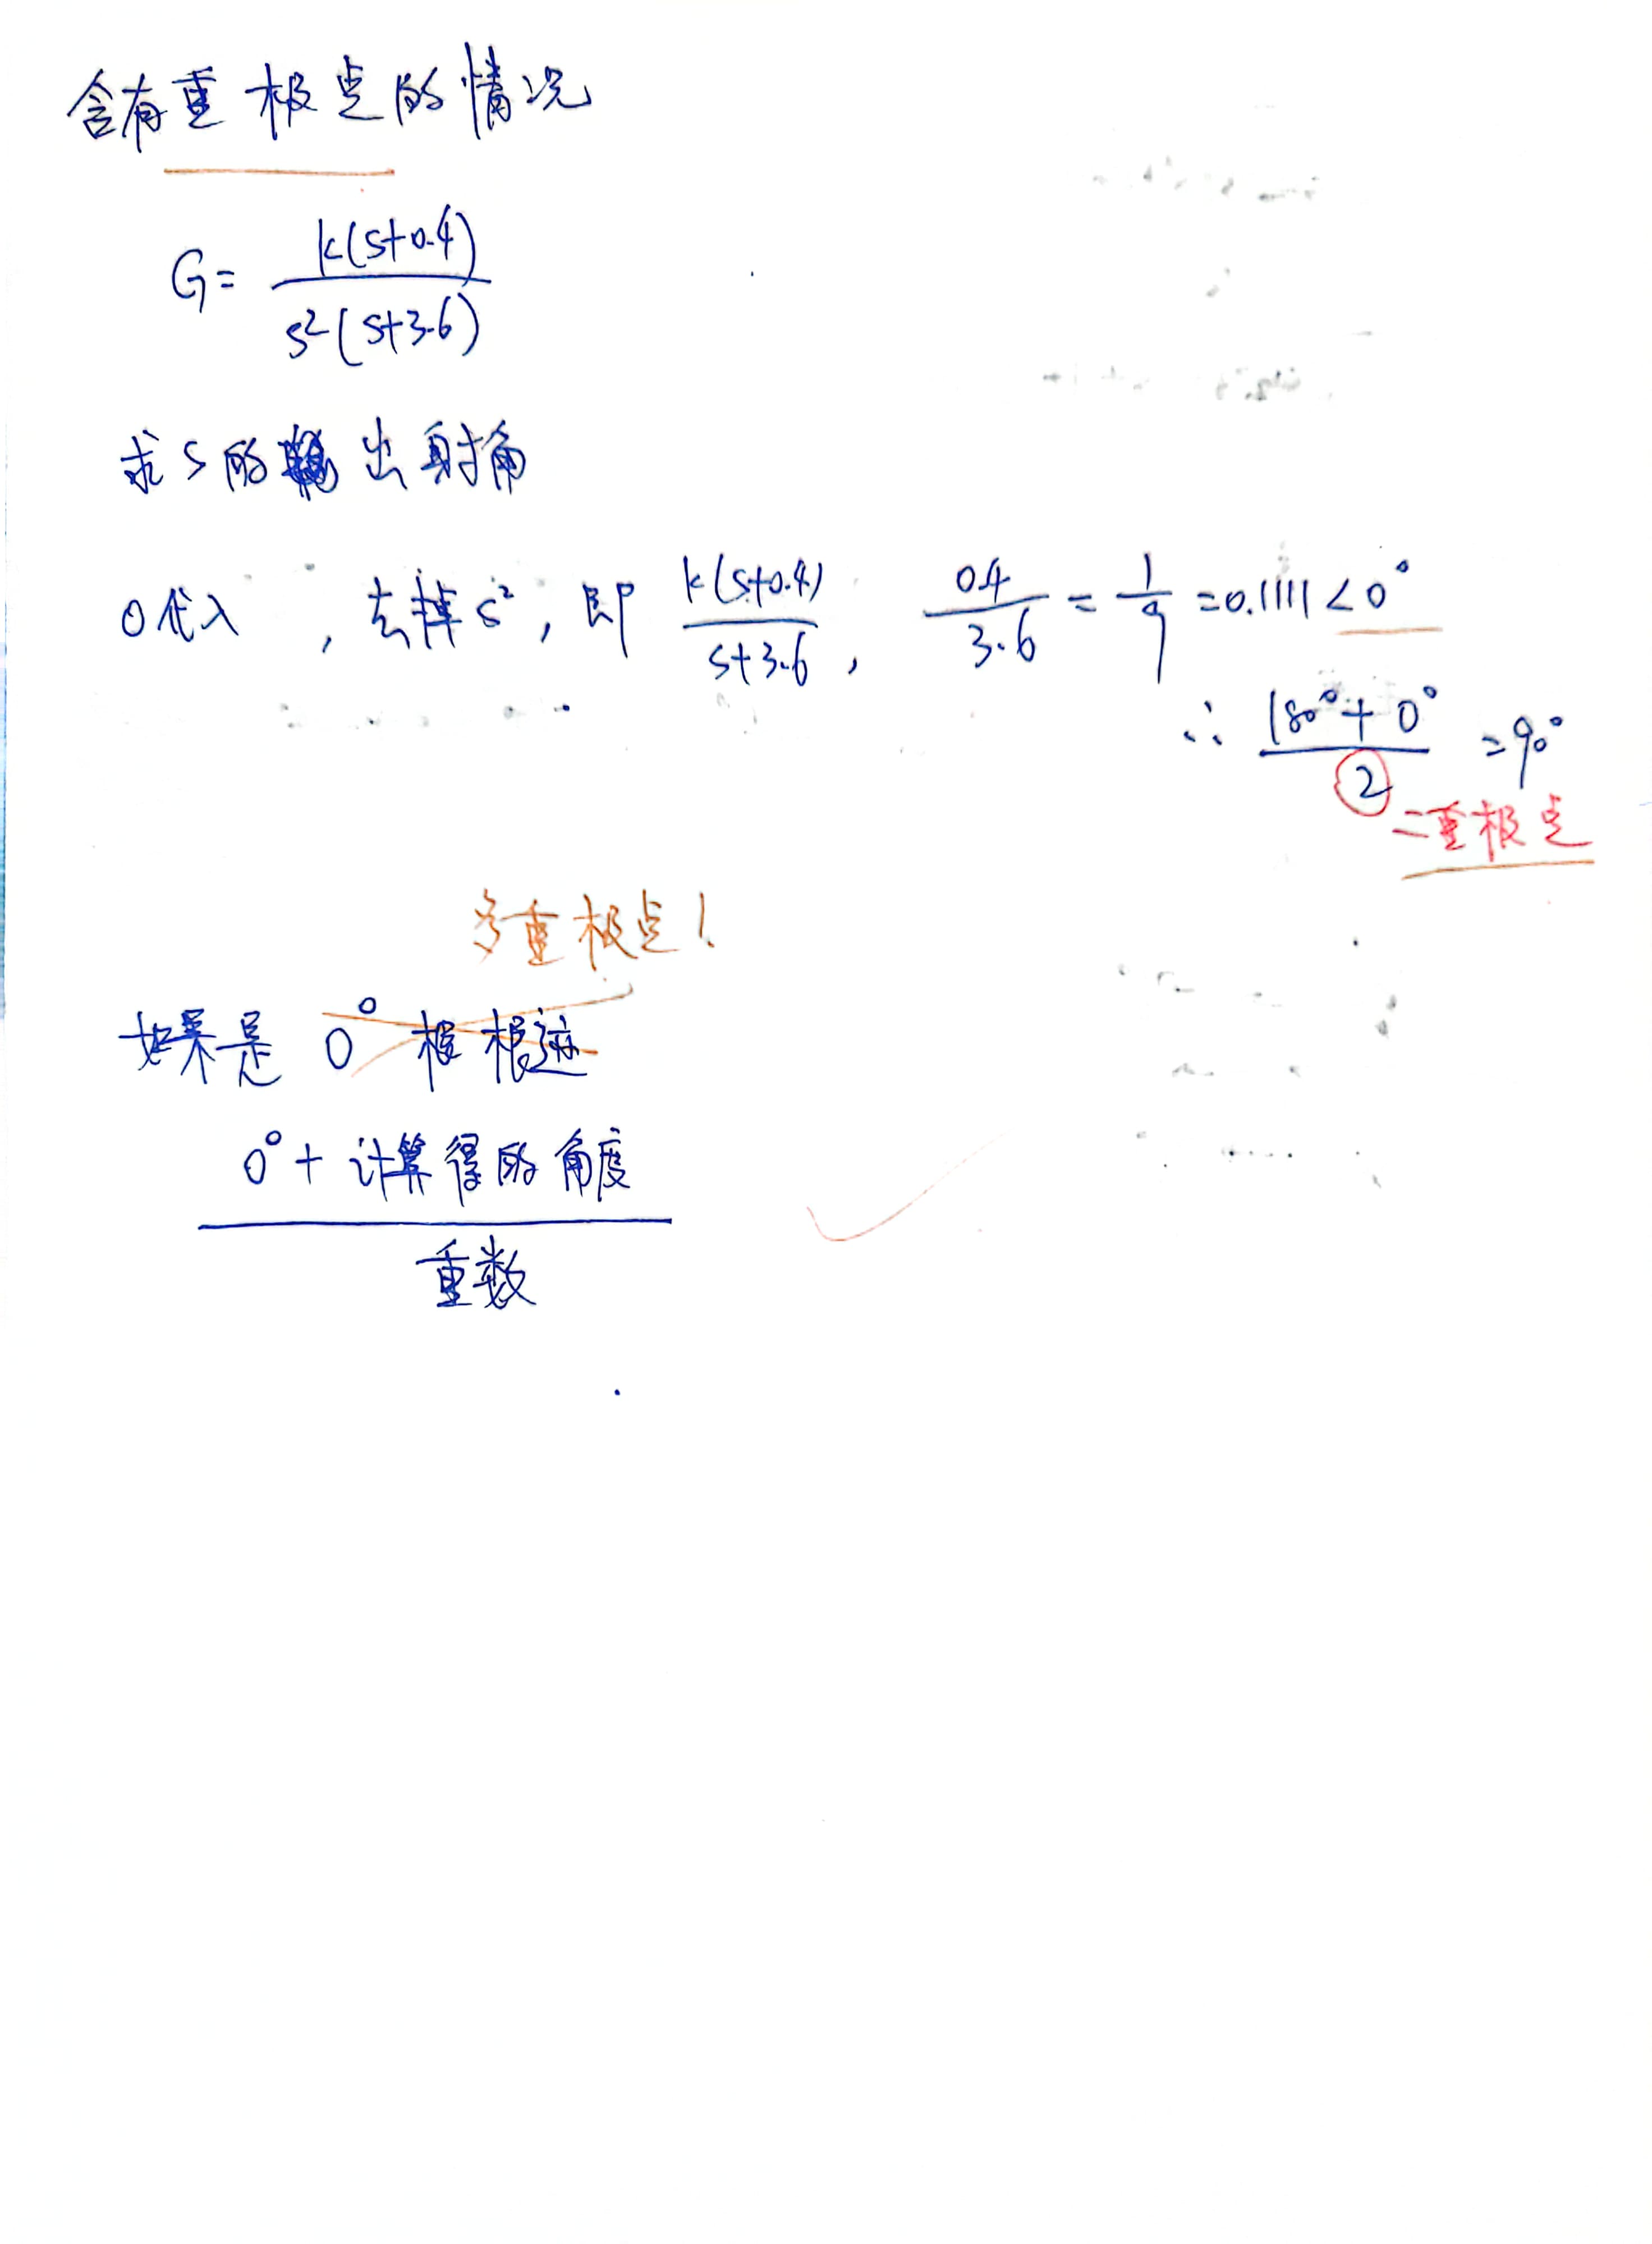 含有重极点的情况
G = k(s+0.4) / s²(s+3.6)
求s的出射角
0代入 , 去掉s², 即 k(s+0.4) / s+3.6 , 0.4 / 3.6 = 1 / 9 = 0.1111 ∠0°
∴ 180°+0° / 2 = 90°
二重极点
多重极点!
如果是 0° 根轨迹
0°+计算得的角度
重数